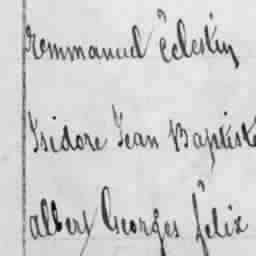 Emmanuel Célestin
Isidore Jean Baptiste
Albert Georges Félix